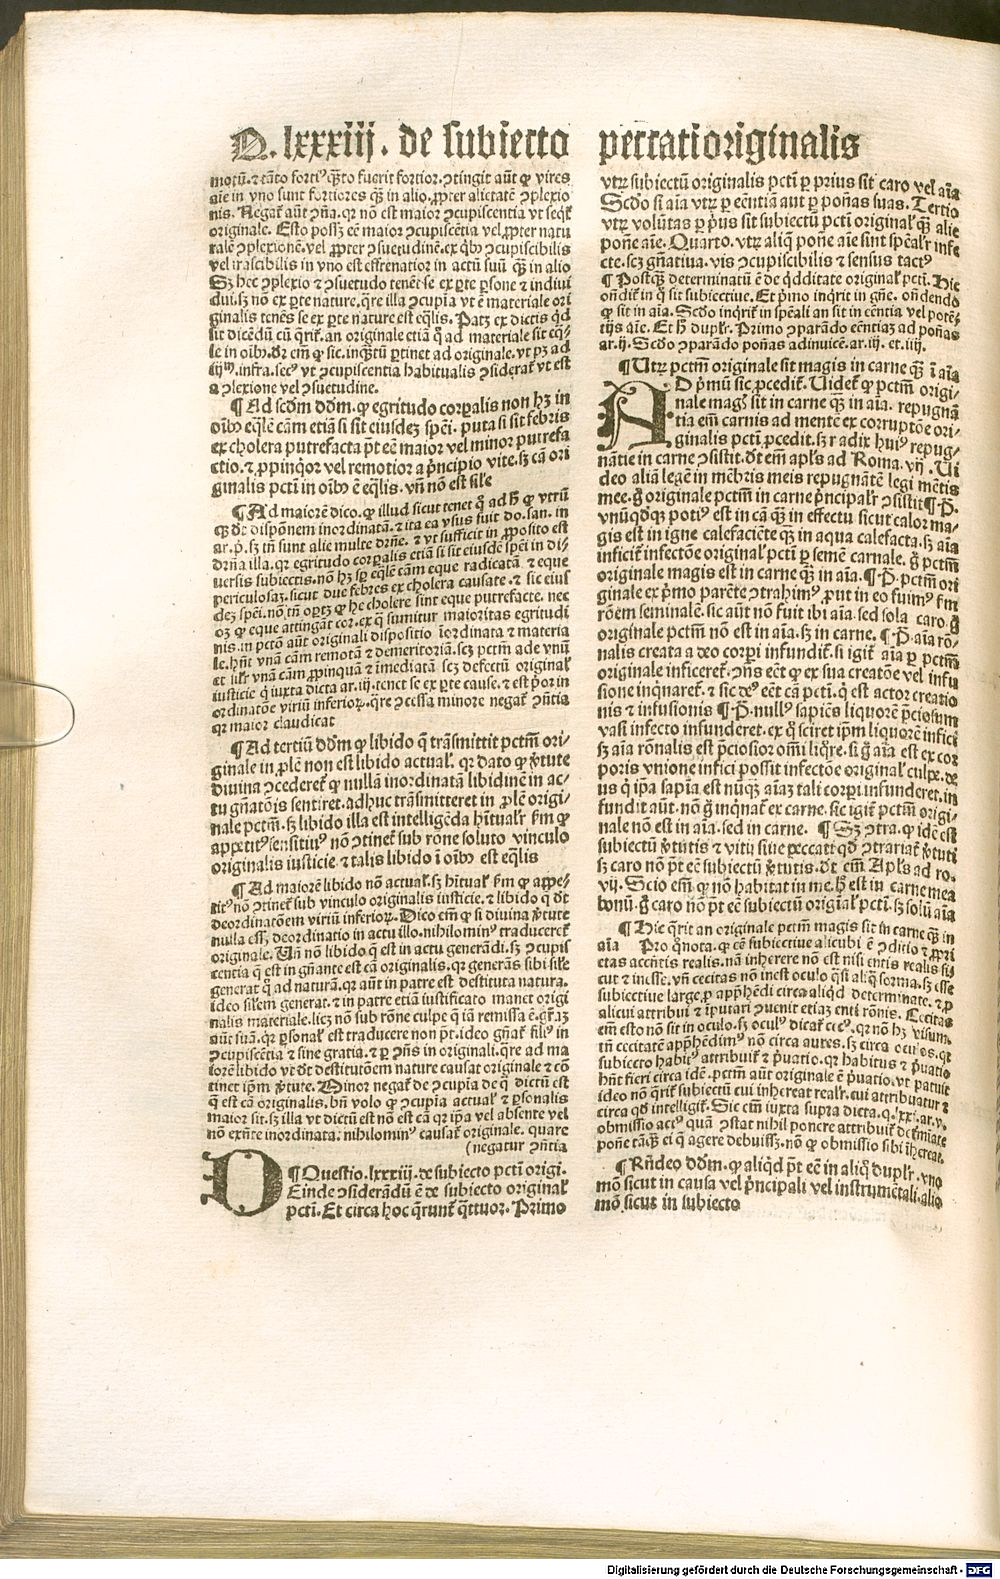 Q. lxxxiij. de subiecto peccati originalis
motū. ⁊ tāto forti⁹ q̄ꝫto fuerit fortior. ꝯtingit aūt ꝙ vires
aīe in vno sunt fortiores q̄ꝫ in alio. ꝓpter alietatē ꝯplexio
nis. Negat̉ aūt ꝯña. qꝛ nō est maior ꝯcupiscentia vt seq̄t̉
originale. Esto possꝫ eē maior ꝯcupiscētia vel ꝓpter natu
ralē ꝯplexionē. vel ꝓpter ꝯsuetudinē. ex qͥbꝰ ꝯcupiscibilis
vel irascibilis in vno est effrenatior in actū suū q̄ꝫ in alio
Sꝫ hec ꝯplexio ⁊ ꝯsuetudo tenēt se ex ꝑte ꝑsone ⁊ indiui
dui. sꝫ nō ex ꝑte nature. qͣre illa ꝯcupīa vt ē materiale ori
ginalis tenēs se ex ꝑte nature est eq̄lis. Patꝫ ex dictis qͥd
sit dicēdū cū q̄rit̉. an originale etiā qͦ ad materiale sit eq̄-
le in oībꝰ. dꝛ em̄ ꝙ sic. inqͣꝫtū ꝑtinet ad originale. vt pꝫ ad
iij. infra. secꝰ vt ꝯcupiscentia habitualis ꝯsiderat̉ vt est
a ꝯplexione vel ꝯsuetudine.
¶ Ad scd̄m dd̄m. ꝙ egritudo corꝑalis non hꝫ in
oībꝰ eq̄lē cām etiā si sit eiusdeꝫ spēi. puta si sit febris
ex cholera putrefacta p̄t eē maior vel minor putrefa
ctio. ⁊ ꝓpinqͥor vel remotior a p̄ncipio vite. sꝫ cā ori
ginalis pctī in oībꝰ ē eq̄lis. vn̄ nō est sil̄e
¶ Ad maiorē dico. ꝙ illud sicut tenet qͦ ad hͦ ꝙ vtrū
qꝫ dt̄ dispōnem inordinatā. ⁊ ita ea vsus fuit do. san. in
ar. p̄. sꝫ tn̄ sunt alie multe dr̄ne. ⁊ vt sufficit in ꝓposito est
dr̄na illa. qꝛ egritudo corꝑalis etiā si sit eiusdē spēi in di-
uersis subiectis. nō hꝫ sp̄ eq̄lē cām eque radicatā ⁊ eque
periculosaꝫ. sicut due febres ex cholera causate. ⁊ sic eius
deꝫ spēi. nō tn̄ oꝑtꝫ ꝙ he cholere sint eque putrefacte. nec
oꝫ ꝙ eque attingāt cor. ex qͦ sumitur maioritas egritudi
nis. in pctō aūt originali dispositio īordinata ⁊ materia
le. hn̄t vnā cām remotā ⁊ demeritoriā. scꝫ pctm̄ ade vnū
et sil̄r vnā cām ꝓpinquā ⁊ īmediatā scꝫ defectū original̉
iusticie qͥ iuxta dicta ar. iij. tenet se ex ꝑte cause. ⁊ est p̄or in
ordinatōe viriū inferioꝝ. qͣre ꝯcessa minore negat̉ ꝯn̄tia
qꝛ maior claudicat
¶ Ad tertiū dd̄m ꝙ libido q̄ trāsmittit pctm̄ ori-
ginale in ꝓlē non est libido actual̉. qꝛ dato ꝙ ꝟtute
diuina ꝯcederet̉ ꝙ nullā inordinatā libidinē in ac-
tu gn̄atōis sentiret. adhuc trāsmitteret in ꝓlē origi-
nale pctm̄. sꝫ libido illa est intelligēda hītual̉r fm̄ ꝙ
appetit⁹ sensitiu⁹ nō ꝯtinet̉ sub rone soluto vinculo
originalis iusticie. ⁊ talis libido ī oībꝰ est eq̄lis
¶ Ad maiorē libido nō actual̉. sꝫ hītual̉ fm̄ ꝙ appe-
tit⁹ nō ꝯtinet̉ sub vinculo originalis iusticie. ⁊ libido q̄ dt̄
deordinatōem viriū inferioꝝ. Dico em̄ ꝙ si diuina ꝟtute
nulla essꝫ deordinatio in actu illo. nihilomin⁹ traduceret̉
originale. Vn̄ nō libido q̄ est in actu generādi. sꝫ ꝯcupis
centia q̄ est in gn̄ante est cā originalis. qꝛ generās sibi sil̄e
generat qͥ ad naturā. qꝛ aūt in patre est destituta natura.
ideo sil̄em generat. ⁊ in patre etiā iustificato manet origi
nalis materiale. licꝫ nō sub rōne culpe q̄ iā remissa ē. gr̄aꝫ
aūt suā. qꝛ ꝑsonal̉ est traducere non p̄t. ideo gn̄at̉ fili⁹ in
ꝯcupiscētia ⁊ sine gratia. ⁊ ꝑ ꝯn̄s in originali. qͣre ad ma
iorē libido vt dt̄ destitutōem nature causat originale ⁊ cō
tinet ip̄m ꝟtute. Minor negat̉ de ꝯcupīa de qͣ dictū est
q̄ est cā originalis. bn̄ volo ꝙ ꝯcupīa actual̉ ⁊ ꝑsonalis
maior sit. sꝫ illa vt dictū est nō est cā qꝛ ip̄a vel absente vel
nō exn̄te inordinata. nihilomin⁹ causat̉ originale. quare
(negatur ꝯn̄tia
¶ Questio. lxxxiij. de subiecto pctī origi.
DEinde ꝯsiderādū ē de subiecto original̉
pctī. Et circa hoc q̄runt̉ q̄ttuor. Primo
vtꝝ subiectū originalis pctī ꝑ prius sit caro vel aīa
Scd̄o si aīa vtꝝ ꝑ eēntiā aut ꝑ poñas suas. Tertio
vtꝝ volūtas ꝑ p̄us sit subiectū pctī original̉ q̄ꝫ alie
poñe aīe. Quarto. vtꝝ aliq̄ poñe aīe sint spēal̉r infe
cte. scꝫ gn̄atiua. vis ꝯcupiscibilis ⁊ sensus tact⁹
¶ Postqͣꝫ determinatū ē de qͥdditate original̉ pctī. Hic
on̄dit̉ in qͦ sit subiectiue. Et p̄mo inqͥrit in gn̄e. on̄dendo
ꝙ sit in aīa. Scd̄o inqͥrit̉ in spēali an sit in eēntia vel potē-
tijs aīe. Et hͦ dupl̉r. Primo ꝯparādo eēntiaꝫ ad poñas
ar. ij. Scd̄o ꝯparādo poñas adinuicē. ar. iij. et. iiij.
¶ Utꝝ pctm̄ originale sit magis in carne q̄ꝫ ī aīa
AD p̄mū sic ꝓcedit̉. Uidet̉ ꝙ pctm̄ origi-
nale mag̉ sit in carne q̄ꝫ in aīa. repugnā
tia em̄ carnis ad mentē ex corruptōe ori-
ginalis pctī ꝓcedit. sꝫ radix hui⁹ repug-
nātie in carne ꝯsistit. dt̄ em̄ apl̄s ad Roma. vij. Ui
deo aliā legē in mēbris meis repugnātē legi mētis
mee. gͦ originale pctm̄ in carne p̄ncipal̉r ꝯsistit ¶ P̄.
vnūqͦdqꝫ poti⁹ est in cā q̄ꝫ in effectu sicut calor ma-
gis est in igne calefaciēte q̄ꝫ in aqua calefacta. sꝫ aīa
inficit̉ infectōe original̉ pctī ꝑ semē carnale. gͦ pctm̄
originale magis est in carne q̄ꝫ in aīa. ¶ P̄. pctm̄ ori
ginale ex p̄mo parēte ꝯtrahim⁹ ꝓut in eo fuim⁹ fm̄
rōem seminalē. sic aūt nō fuit ibi aīa. sed sola caro. gͦ
originale pctm̄ nō est in aīa. sꝫ in carne. ¶ P̄. aīa rō-
nalis creata a deo corpi infundit̉. si igit̉ aīa ꝑ pctm̄
originale inficeret̉. ꝯn̄s eēt ꝙ ex sua creatōe vel infu
sione inqͥnaret̉. ⁊ sic de⁹ eēt cā pctī. qͥ est actor creatio
nis ⁊ infusionis ¶ P̄. null⁹ sapiēs liquorē p̄ciosum
vasi infecto infunderet. ex qͦ sciret ip̄m liquorē infici
sꝫ aīa rōnalis est p̄ciosior omī liqͦre. si gͦ aīa est ex cor
poris vnione infici possit infectōe original̉ culpe. de
us qͥ ip̄a sapīa est nūqͣꝫ aīaꝫ tali corpi infunderet. in
fundit aūt. nō gͦ inqͥnat̉ ex carne. sic igit̉ pctm̄ origi-
nale nō est in aīa. sed in carne. ¶ Sꝫ ꝯtra. ꝙ idē est
subiectū ꝟtutis ⁊ vitij siue peccati qd̄ ꝯtrariat̉ ꝟtuti
sꝫ caro nō p̄t eē subiectū ꝟtutis. dt̄ em̄ Apl̄s ad ro.
vij. Scio em̄ ꝙ nō habitat in me. hͦ est in carne mea
bonū. gͦ caro nō p̄t eē subiectū original̉ pctī. sꝫ solū aīa
¶ Hic q̄rit an originale pctm̄ magis sit in carne q̄ꝫ in
aīa Pro qͦ nota. ꝙ eē subiectiue alicubi ē ꝯditio ⁊ ꝓpri
etas accn̄tis realis. nā inherere nō est nisi entis realis sic
cut ⁊ inesse. vn̄ cecitas nō inest oculo qͣsi aliq̄ forma. sꝫ esse
subiectiue large. ꝓ apphēdi circa aliqͥd determinate. ⁊ ꝓ
alicui attribui ⁊ īputari ꝯuenit etiaꝫ enti rōnis. Cecitas
em̄ esto nō sit in oculo. sꝫ ocul⁹ dicat̉ cec⁹. qꝛ nō hꝫ visum.
tn̄ cecitatē apphēdim⁹ nō circa aures. sꝫ circa oculos. qꝛ
subiecto habit⁹ attribuit̉ ⁊ p̄uatio. qꝛ habitus ⁊ p̄uatio
hn̄t fieri circa idē. pctm̄ aūt originale ē p̄uatio. vt patuit
ideo nō q̄rit̉ subiectū cui inhereat real̉r. cui attribuatur ⁊
circa qd̄ intelligit̉. Sic em̄ iuxta supra dicta. q. lxxi. ar. v.
obmissio act⁹ quā ꝯstat nihil ponere attribuit̉ det̉miate
poñe tāqͣꝫ ei q̄ agere debuissꝫ. nō ꝙ obmissio sibi īhereat.
¶ Rn̄deo dd̄m. ꝙ aliqͥd p̄t eē in aliqͦ dupl̉r. vno
mō sicut in causa vel p̄ncipali vel instrumētali. alio
mō sicut in subiecto
Digitalisierung gefördert durch die Deutsche Forschungsgemeinschaft - DFG